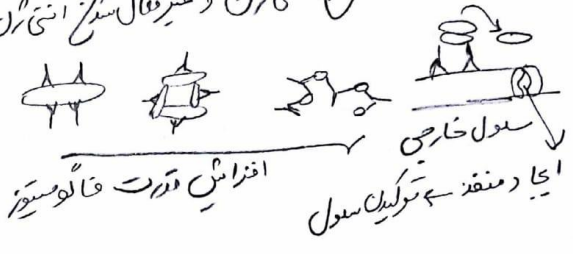 و غیرفعال شدن آنتی ژن
سلول خارجی
افزایش قدرت فاگوسیتوز
ایجاد منفذ → ترکیدن سلول